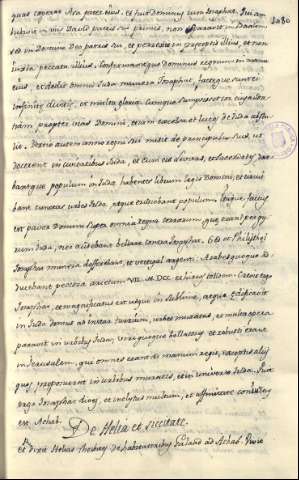 1080
quas ceperat Asa pater eius, et fuit Dominus cum Iosaphat. Qui am
bulavit in viis David patris sui primis, non speravit in Baalim
sed in Deum Dei patris sui, et perrexit in preceptis illius, et non
iuxta peccata illius. Confirmavitque Dominus regnum in manu
eius, et dedit omnis Iuda munera Iosaphat, factęque sunt ei
infinitę divitię, et multa gloria. Cumque sumpsisset cor eius
propter vias Domini, etiam excelsa et lucos de Iuda abstu
lit. Tertio autem anno regni sui misit de principibus suis ut
docerent in civitatibus Iuda, et cum eis Levitas, et sacerdotes, doce
bantque populum in Iuda habentes librum legis Domini, et circui
bant cunctas urbes Iuda, atque erudiebant populum. Itaque factus
est pavor Domini super omnia regna terrarum, quę erant per gy
rum Iuda, nec audebant bellare contra Iosaphat. Sed et Philisthęi
Iosaphat munera deferebant, et vectigal argenti. Arabesque
ducebant pecora arietum VII. M. DCC. et hircos totidem. Crevit ergo
Iosaphat, et magnificatus est usque in sublime, atque ędificavit
in Iuda domus ad instar turrium, urbes muratas, et multa opera
paravit in urbibus Iuda, viri quoque bellatores, et robusti erant
in Ierusalem, qui omnes erant ad manum regis, exceptis aliis
quos posuerat in urbibus muratis, et in universo Iuda. Fuit
ergo Iosaphat dives, et inclytus multum, et affinitate coniunctus
est Achab.
De Helia et siccitate.
Et dixit Helias Thesbites de habitatoribus Galaad ad Achab. Vivit